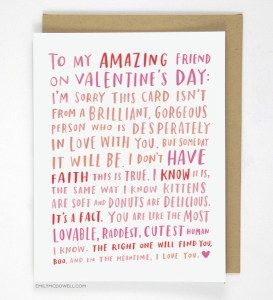 TO MY AMAZING FRIEND
ON VALENTINE'S DAY:
I'M SORRY THIS CARD ISN'T
FROM A BRILLIANT, GORGEOUS
PERSON WHO IS DESPERATELY
IN LOVE WITH YOU. BUT SOMEDAY
IT WILL BE. I DON'T HAVE
FAITH THIS IS TRUE. I KNOW IT IS,
THE SAME WAY I KNOW KITTENS
ARE SOFT AND DONUTS ARE DELICIOUS.
IT'S A FACT. YOU ARE LIKE THE MOST
LOVABLE, RADDEST, CUTEST HUMAN
I KNOW. THE RIGHT ONE WILL FIND YOU,
BOO. AND IN THE MEANTIME, I LOVE YOU.
EMILYMCDOWELL.COM